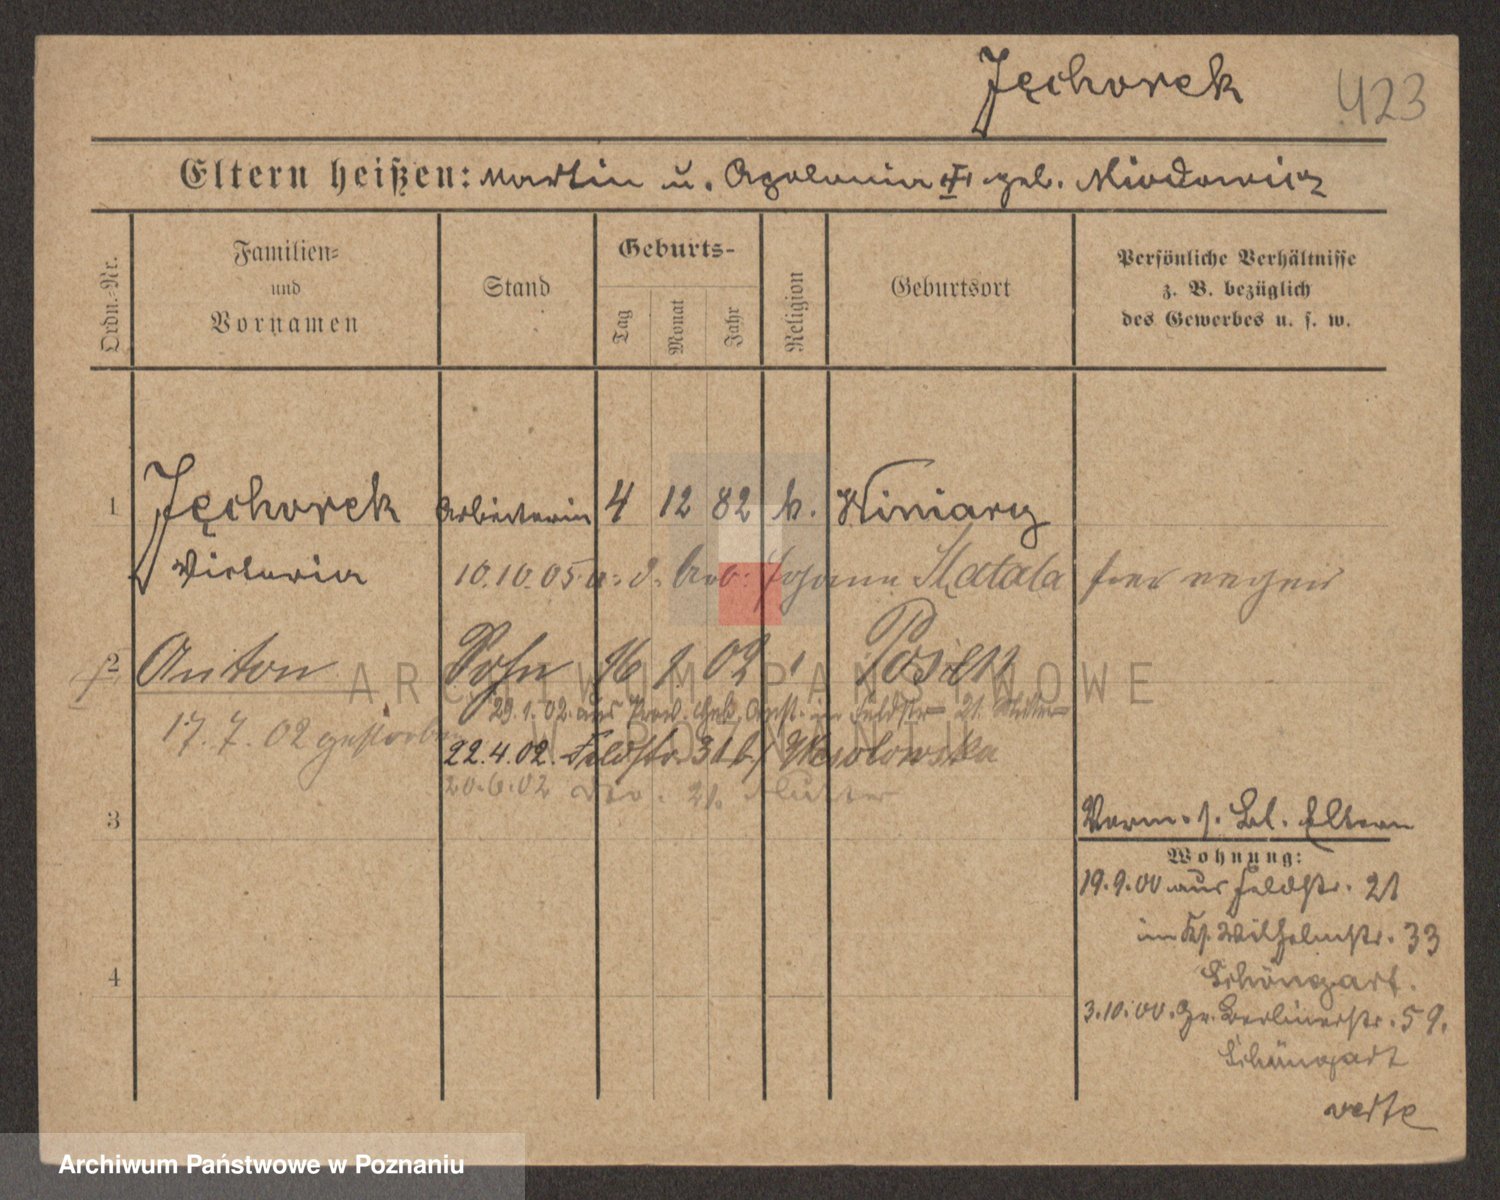 Jęchorek 423
Eltern heißen: Martin u. Apolonia geb. Miodowicz
Ordn.-Nr.
Familien-
und
Vornamen
Stand
Geburts-
Tag
Monat
Jahr
Religion
Geburtsort
Persönliche Verhältnisse
z. B. bezüglich
des Gewerbes u. s. w.
1 Jęchorek Arbeiterin 4 12 82 k. Winiary
Victoria 10.10.05 Johann Matala
2 Anton Sohn 16 1. 02 Posen
29.1.02. aus Feldstr 21
17.7.02 gestorben
22.4.02. Feldstr. 31 b/ Wesolowska
20.6.02 21. Mutter
3
Vorm. s. Bl. Eltern
Wohnung:
19.9.00 aus Feldstr. 21
4
im Wilhelmstr. 33
Schöngart.
3.10.00. Gr. Berlinerstr. 59.
Schöngart
verte
ARCHIWUM PAŃSTWOWE
W POZNANIU
Archiwum Państwowe w Poznaniu